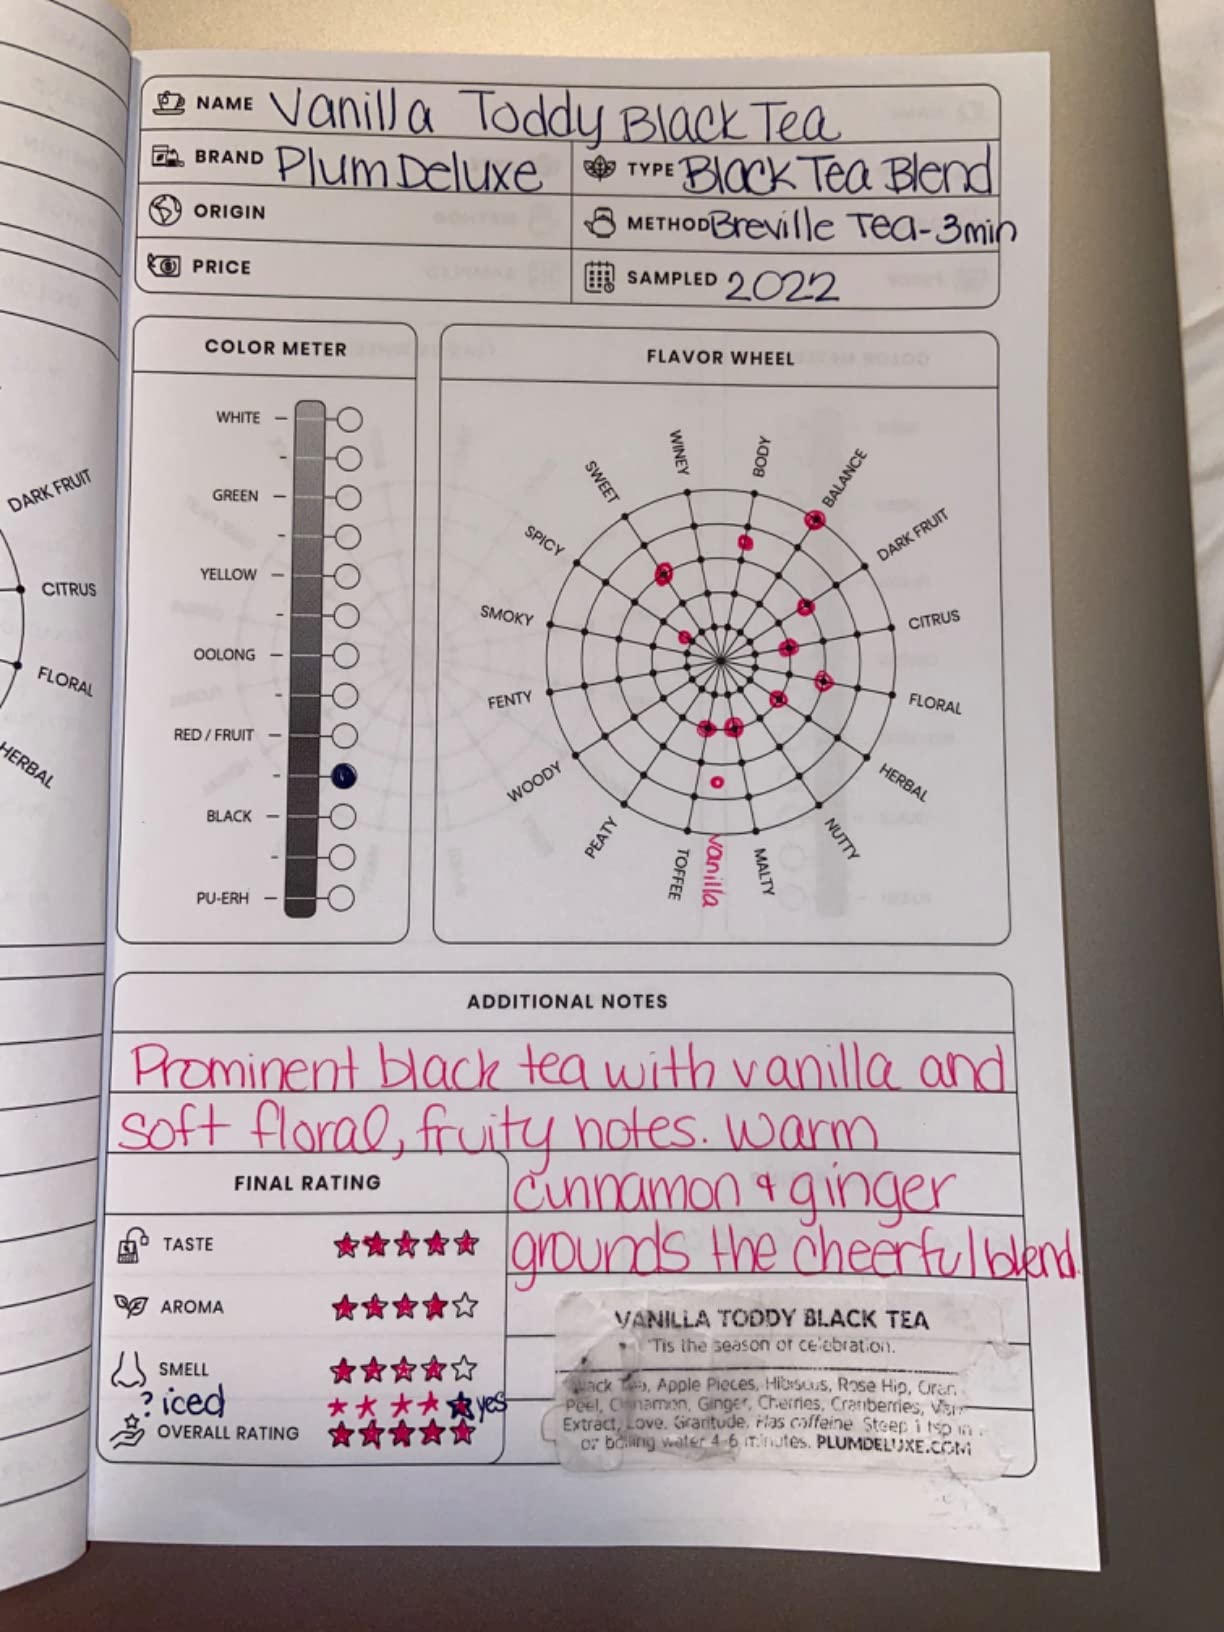 NAME Vanilla Toddy Black Tea
BRAND Plum Deluxe
TYPE Black Tea Blend
ORIGIN
METHOD Breville Tea - 3min
PRICE
SAMPLED 2022
COLOR METER
WHITE
GREEN
YELLOW
OOLONG
RED / FRUIT
BLACK
PU-ERH
FLAVOR WHEEL
WINEY
BODY
BALANCE
DARK FRUIT
CITRUS
FLORAL
HERBAL
NUTTY
MALTY
vanilla
TOFFEE
PEATY
WOODY
FENTY
SMOKY
SPICY
SWEET
DARK FRUIT
CITRUS
FLORAL
HERBAL
ADDITIONAL NOTES
Prominent black tea with vanilla and
soft floral, fruity notes. Warm
cinnamon & ginger
grounds the cheerful blend.
FINAL RATING
TASTE
AROMA
SMELL
? iced yes
OVERALL RATING
VANILLA TODDY BLACK TEA
'Tis the season of celebration.
Tea, Apple Pieces, Hibiscus, Rose Hip,
Peel, Cinnamon, Ginger, Cherries, Cranberries,
Extract, Love, Gratitude. Has caffeine. Steep 1 tsp in
oz boiling water 4-6 minutes. PLUMDELUXE.COM